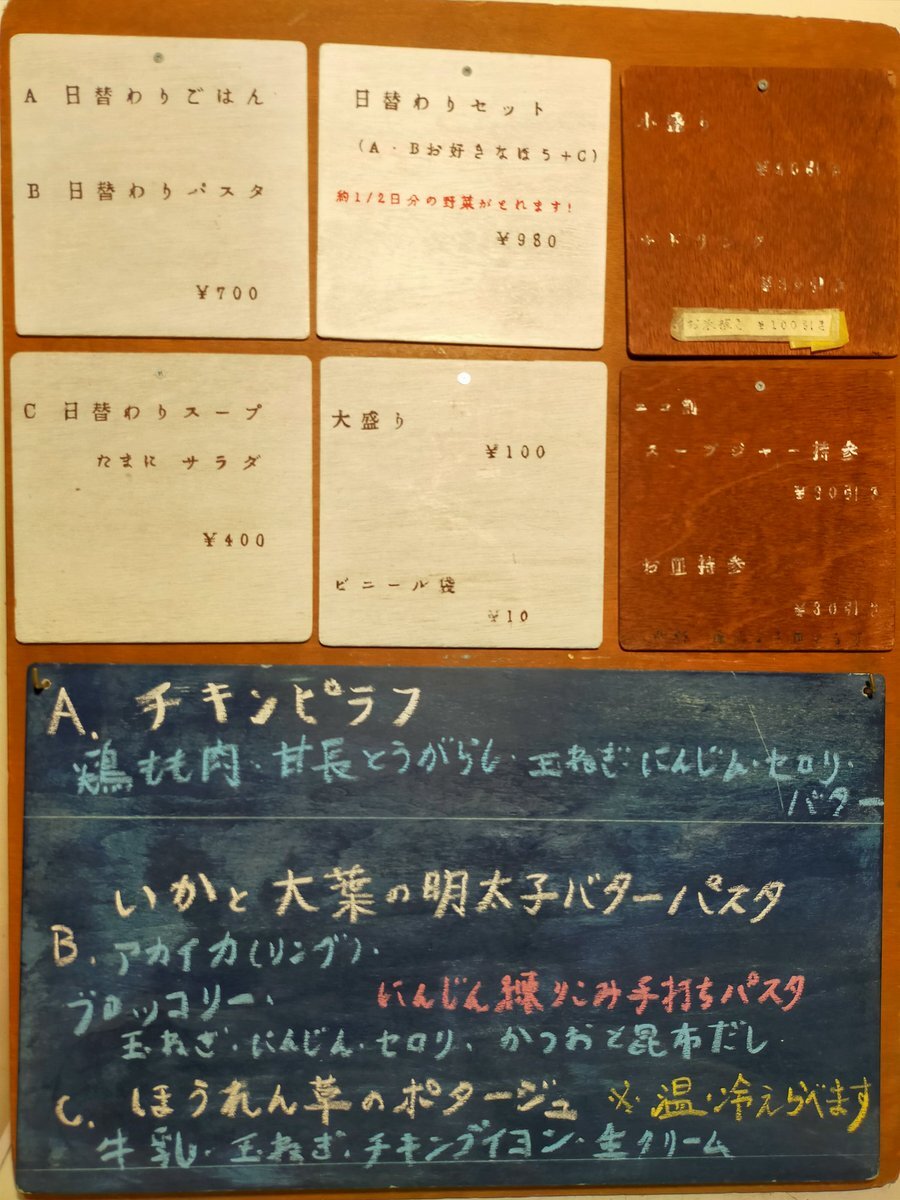 A 日替わりごはん
B 日替わりパスタ
¥700
日替わりセット
(A・Bお好きなほう+C)
約1/2日分の野菜がとれます!
¥980
小盛り
お水抜き ¥100引き
C 日替わりスープ
たまに サラダ
¥400
大盛り
¥100
ビニール袋
¥10
エコ割
スープジャー持参
¥30引き
お皿持参
¥30引き
A. チキンピラフ
鶏もも肉・甘長とうがらし・玉ねぎ・にんじん・セロリ・
バター
いかと大葉の明太子バターパスタ
B. アカイカ(リング)・
ブロッコリー・
にんじん練りこみ手打ちパスタ
玉ねぎ・にんじん・セロリ、かつおと昆布だし
C. ほうれん草のポタージュ ※温・冷えらべます
牛乳・玉ねぎ・チキンブイヨン・生クリーム